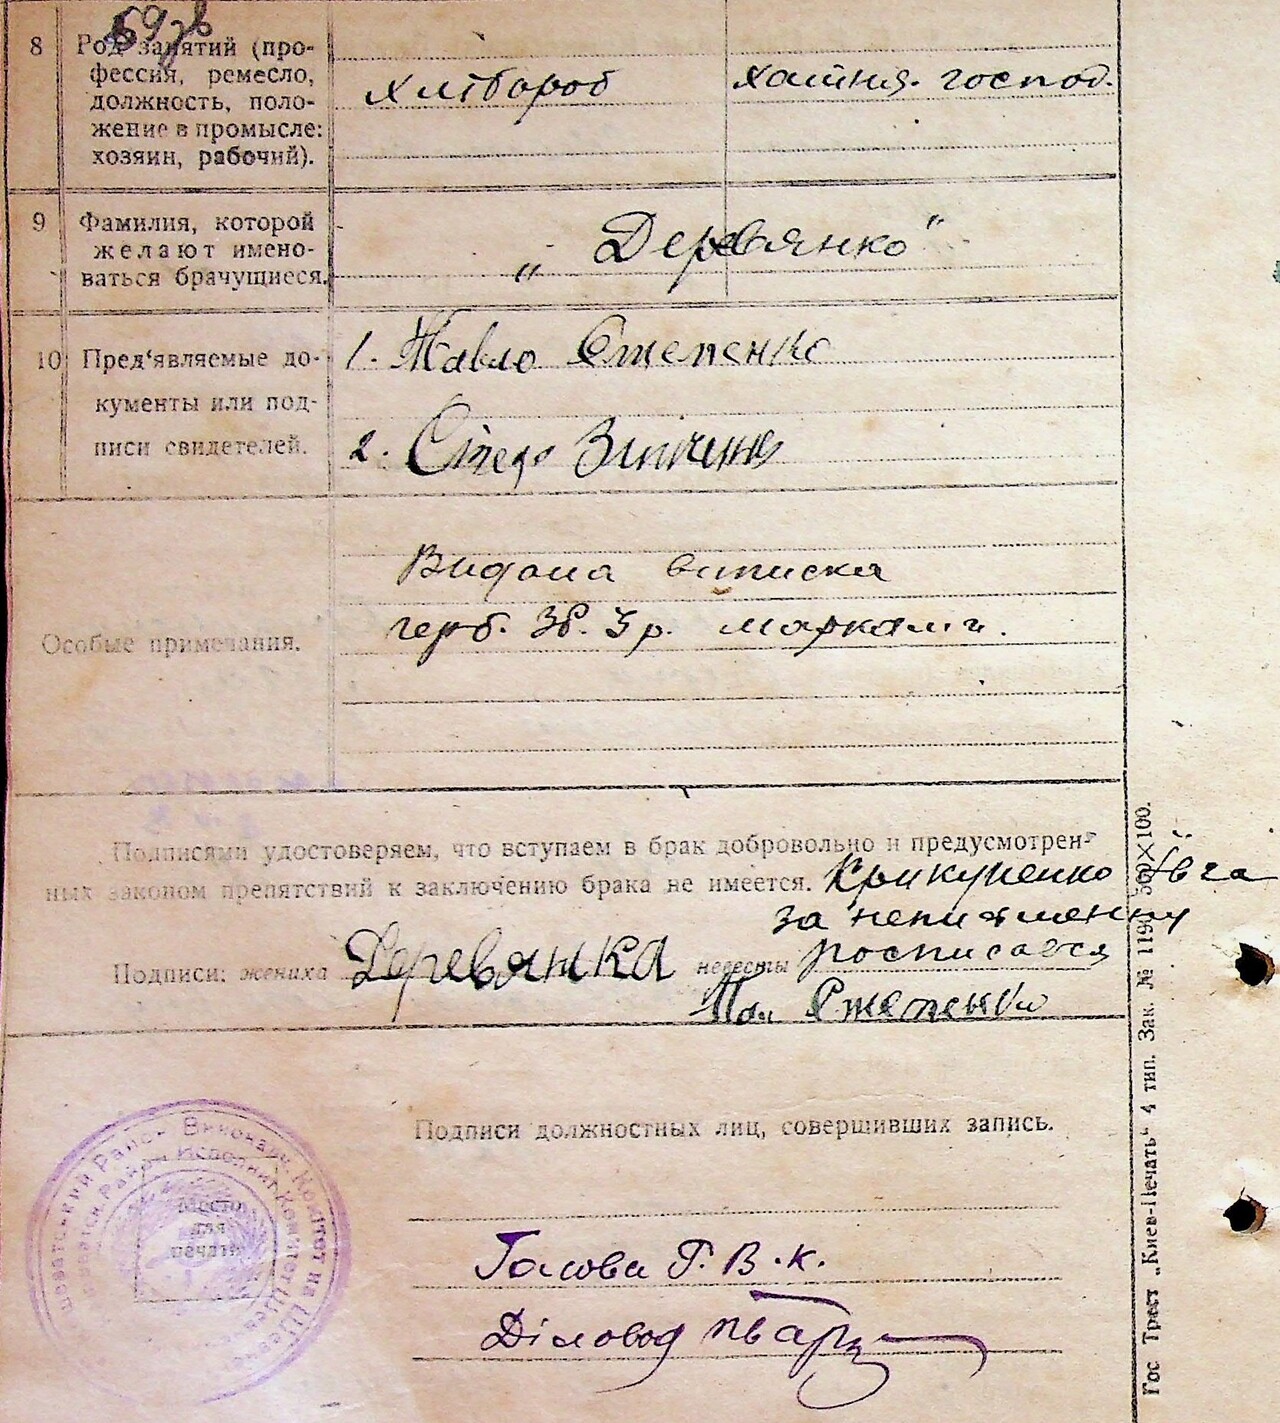 8 Род занятий (про-
фессия, ремесло,
должность, поло-
жение в промысле:
хозяин, рабочий).
хлібороб
хатня. господ.
9 Фамилия, которой
желают имено-
ваться брачущиеся.
„Деревянко“
10 Пред‘являемые до-
кументы или под-
писи свидетелей.
1. Павло Степенко
2.
Особые примечания.
Видана виписка
герб. Зб. 3 р. марками.
Подписями удостоверяем, что вступаем в брак добровольно и предусмотрен-
ных законом препятствий к заключению брака не имеется.
Крикуненко Ївга
за неписьменну
Подписи: жениха Деревянка невесты росписався
Пав Степенко
Подписи должностных лиц, совершивших запись.
Голова Р. В. К.
Діловод
Место
для
печати
Районов Виконавч. Комітет
Район Исполнит. Комитет
Гос Трест „Киев-Печать“ 4 тип. Зак. № 1190 500×100.